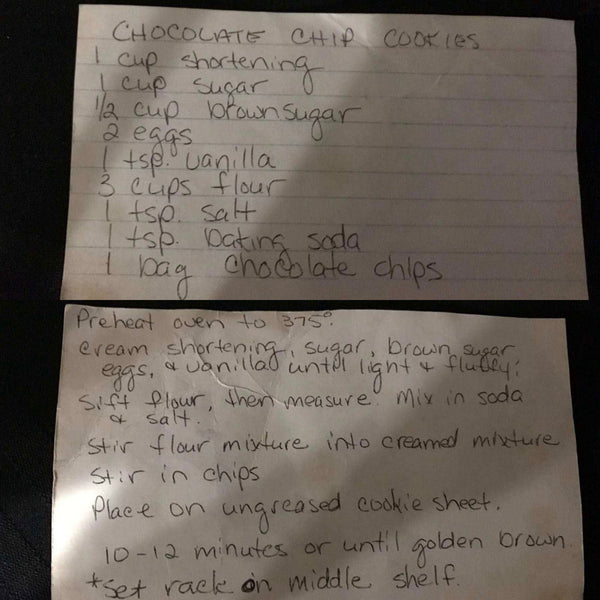 CHOCOLATE CHIP COOKIES
1 cup shortening
1 cup sugar
1/2 cup brown sugar
2 eggs
1 tsp. vanilla
3 cups flour
1 tsp. salt
1 tsp. baking soda
1 bag chocolate chips
Preheat oven to 375°.
Cream shortening, sugar, brown sugar
eggs, & vanilla until light & fluffy.
Sift flour, then measure. Mix in soda
& salt.
Stir flour mixture into creamed mixture
Stir in chips
Place on ungreased cookie sheet.
10-12 minutes or until golden brown.
*Set rack on middle shelf.